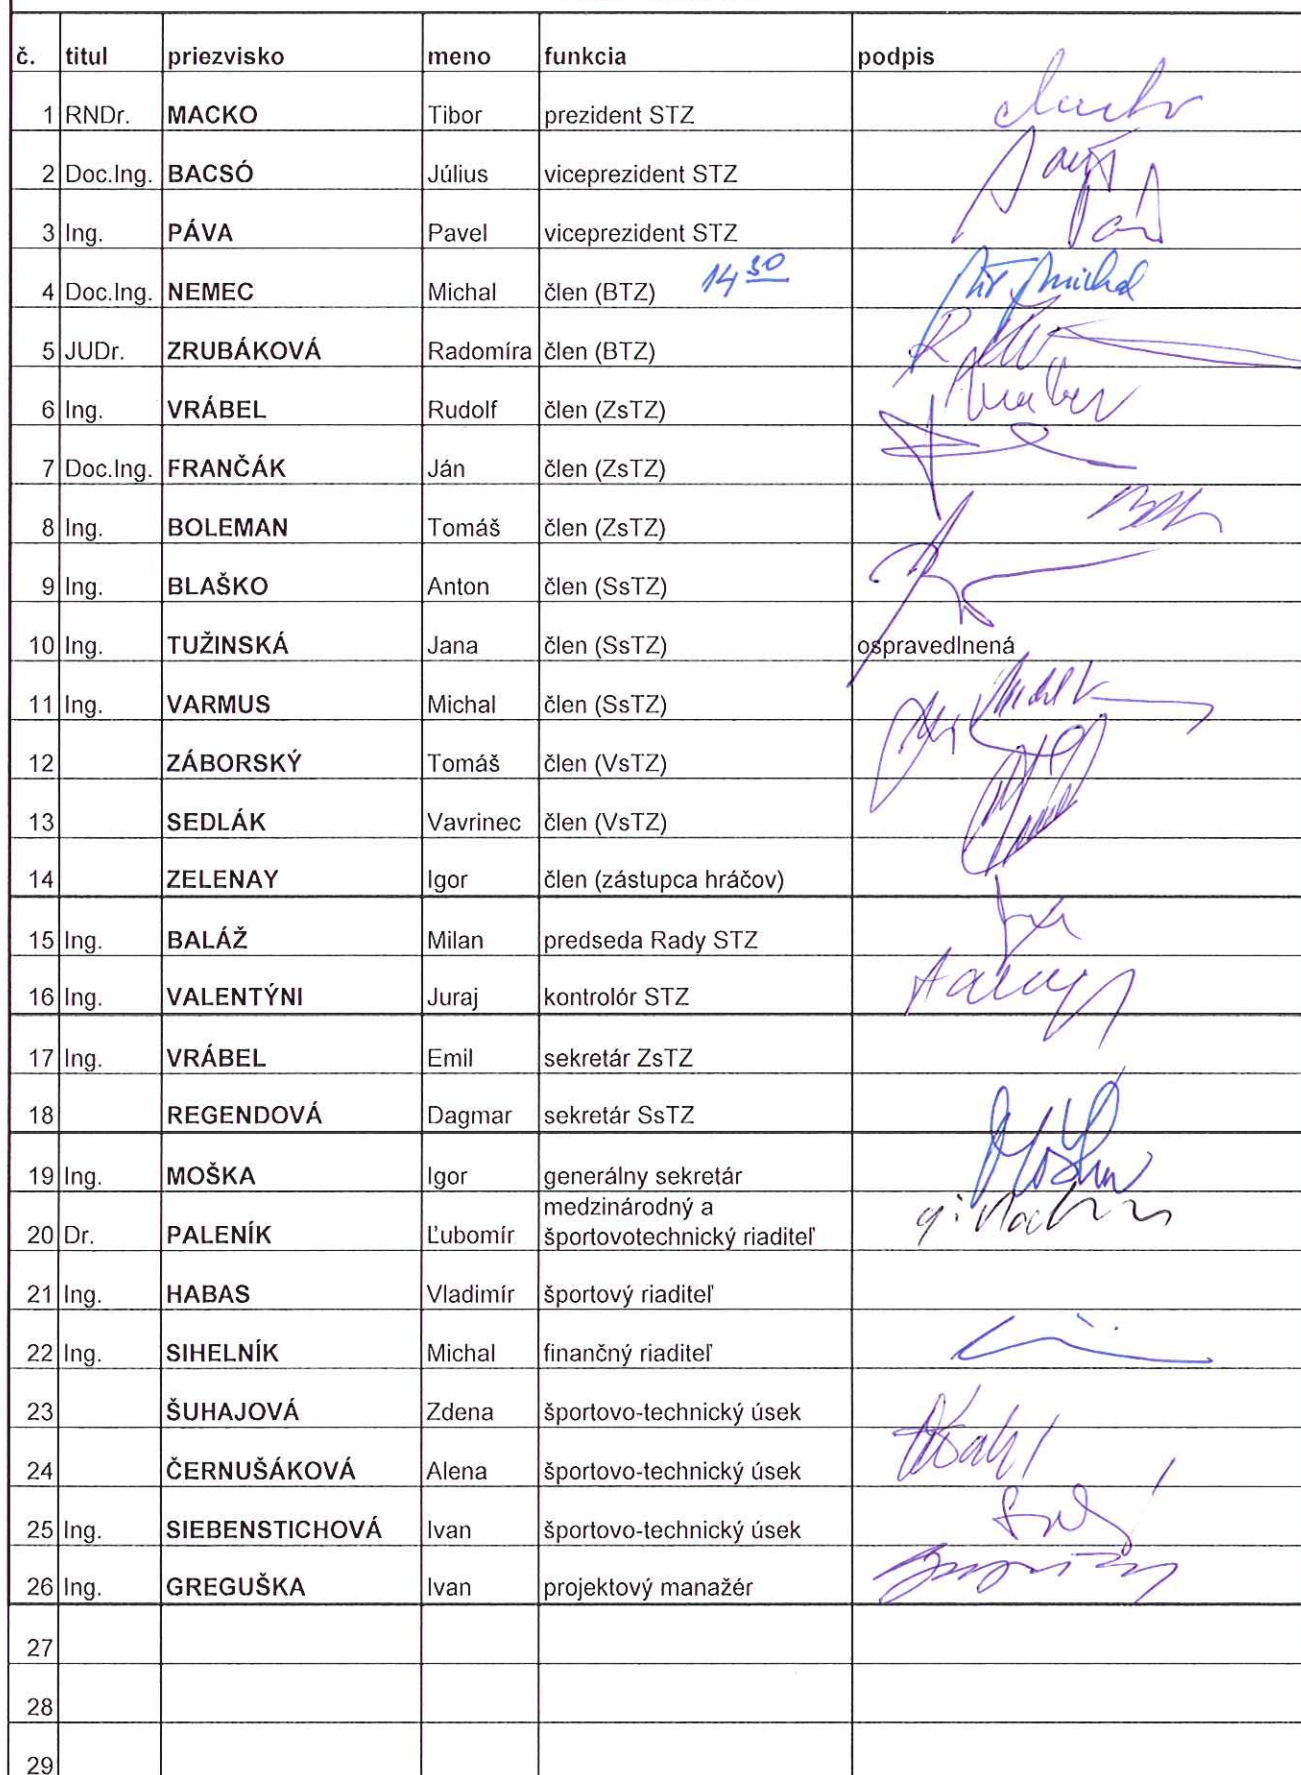 č. titul priezvisko meno funkcia podpis
1 RNDr. MACKO Tibor prezident STZ
2 Doc.Ing. BACSÓ Július viceprezident STZ
3 Ing. PÁVA Pavel viceprezident STZ
4 Doc.Ing. NEMEC Michal člen (BTZ) 14 30 Michal
5 JUDr. ZRUBÁKOVÁ Radomíra člen (BTZ)
6 Ing. VRÁBEL Rudolf člen (ZsTZ)
7 Doc.Ing. FRANČÁK Ján člen (ZsTZ)
8 Ing. BOLEMAN Tomáš člen (ZsTZ)
9 Ing. BLAŠKO Anton člen (SsTZ)
10 Ing. TUŽINSKÁ Jana člen (SsTZ) ospravedlnená
11 Ing. VARMUS Michal člen (SsTZ)
12 ZÁBORSKÝ Tomáš člen (VsTZ)
13 SEDLÁK Vavrinec člen (VsTZ)
14 ZELENAY Igor člen (zástupca hráčov)
15 Ing. BALÁŽ Milan predseda Rady STZ
16 Ing. VALENTÝNI Juraj kontrolór STZ
17 Ing. VRÁBEL Emil sekretár ZsTZ
18 REGENDOVÁ Dagmar sekretár SsTZ
19 Ing. MOŠKA Igor generálny sekretár
medzinárodný a
20 Dr. PALENÍK Ľubomír športovotechnický riaditeľ
21 Ing. HABAS Vladimír športový riaditeľ
22 Ing. SIHELNÍK Michal finančný riaditeľ
23 ŠUHAJOVÁ Zdena športovo-technický úsek
24 ČERNUŠÁKOVÁ Alena športovo-technický úsek
25 Ing. SIEBENSTICHOVÁ Ivan športovo-technický úsek
26 Ing. GREGUŠKA Ivan projektový manažér
27
28
29